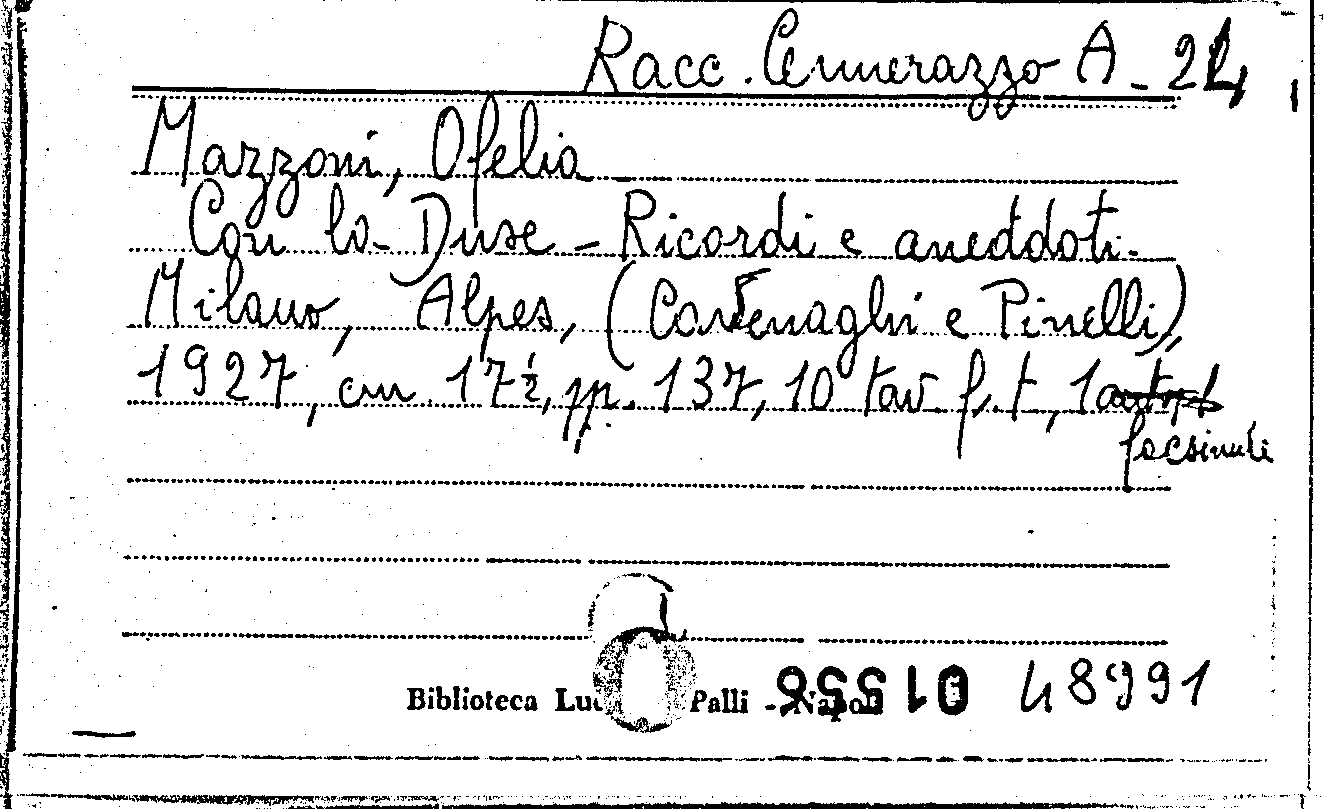 Racc. Cennerazzo A - 24
Mazzoni, Ofelia
Con la Duse - Ricordi e aneddoti.
Milano, Alpes, (Cavenaghi e Pinelli),
1927, cm 17½, pp. 137, 10 tav. f. t, 1
facsimile
Biblioteca Palli - Napoli 48991